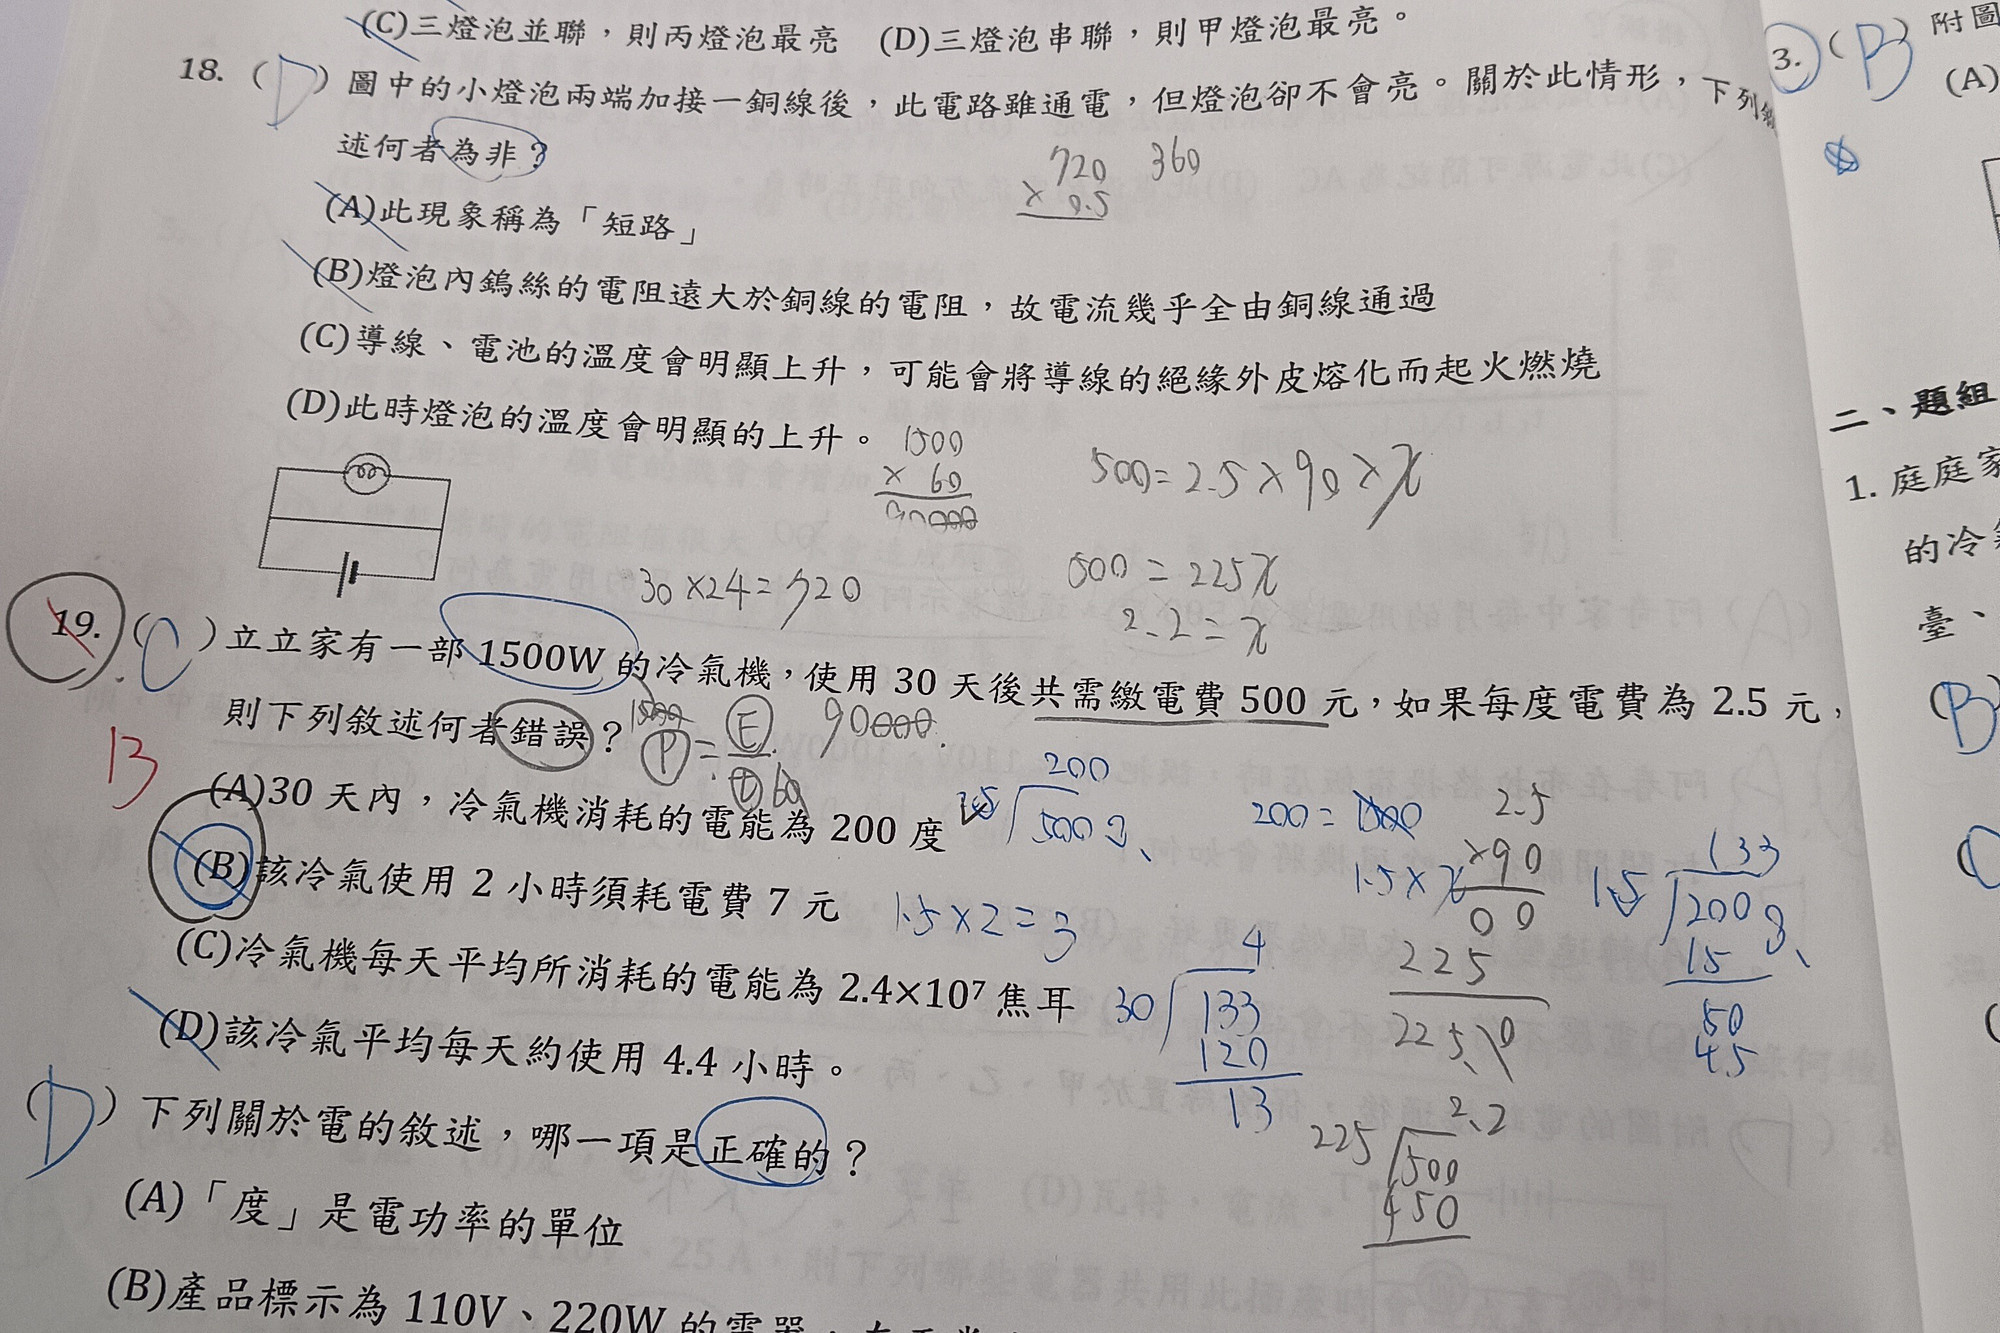 (C)三燈泡並聯，則丙燈泡最亮 (D)三燈泡串聯，則甲燈泡最亮。
18. ( D ) 圖中的小燈泡兩端加接一銅線後，此電路雖通電，但燈泡卻不會亮。關於此情形，下列敘
述何者為非？
720 360
× 0.5
(A)此現象稱為「短路」
(B)燈泡內鎢絲的電阻遠大於銅線的電阻，故電流幾乎全由銅線通過
(C)導線、電池的溫度會明顯上升，可能會將導線的絕緣外皮熔化而起火燃燒
(D)此時燈泡的溫度會明顯的上升。
1500
× 60
90000
500=2.5×90×x
500=225x
2.2=x
30×24=720
19. ( C ) 立立家有一部 1500W 的冷氣機，使用 30 天後共需繳電費 500 元，如果每度電費為 2.5 元，
則下列敘述何者錯誤？
1500
P=E
t 60
90000
B
(A)30 天內，冷氣機消耗的電能為 200 度
200
500
(B)該冷氣使用 2 小時須耗電費 7 元
1.5×2=3
(C)冷氣機每天平均所消耗的電能為 2.4×10⁷ 焦耳
(D)該冷氣平均每天約使用 4.4 小時。
200=
1.5×x
2.5
×90
00
225
225.0
133
1.5 200
15
50
45
4
30 133
120
13
2.2
225 500
450
( D ) 下列關於電的敘述，哪一項是正確的？
(A)「度」是電功率的單位
(B)產品標示為 110V、220W 的電器，
3. ( B ) 附圖
(A)
二、題組
1. 庭庭家
的冷氣
臺、
(B)